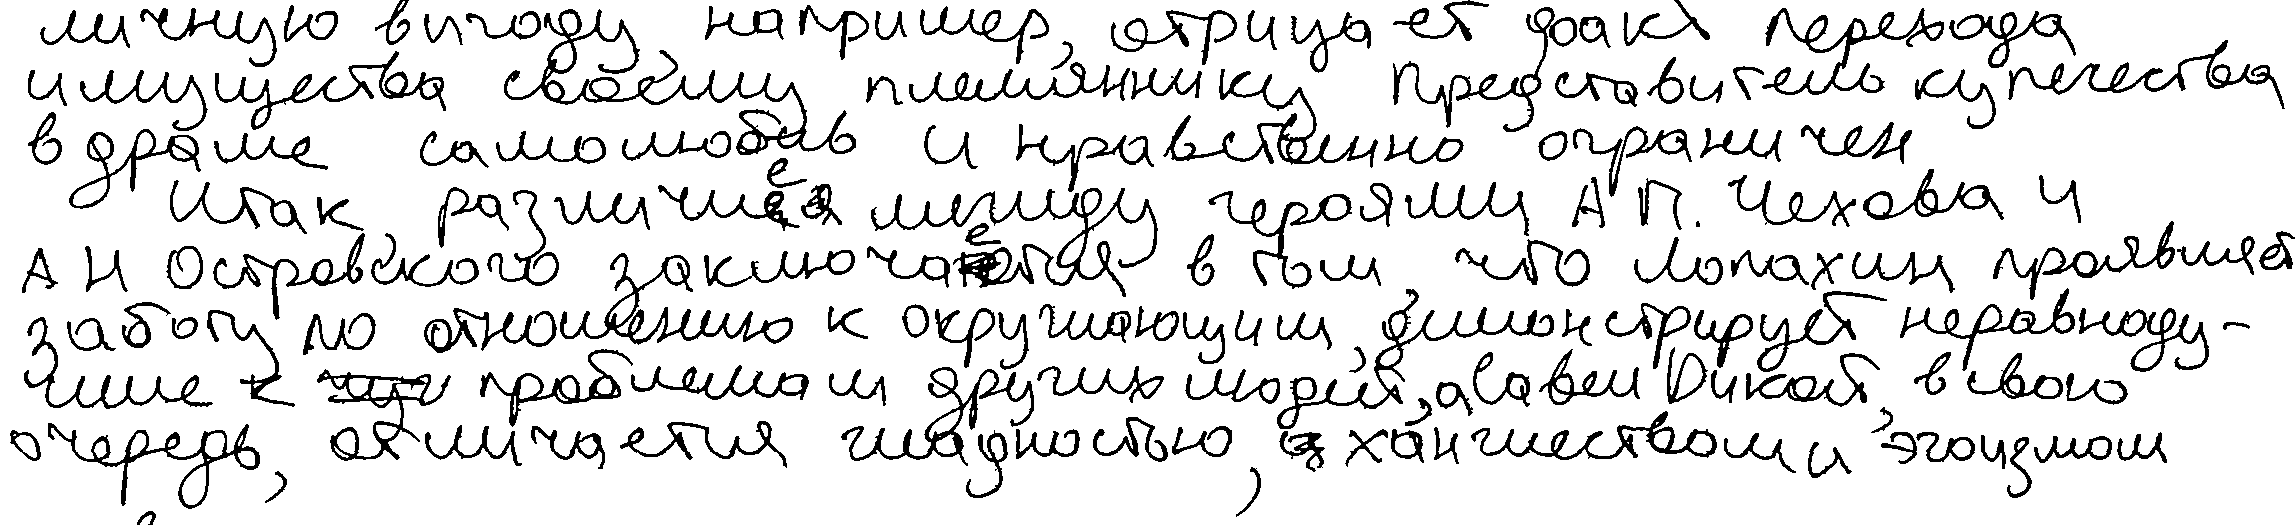 личную выгоду, например, отрицает факт перехода
имущества своему племяннику Представитель купечества
в драме самолюбив и нравственно ограничен
Итак, различие между героями А П. Чехова и
А Н Островского заключается в том, что Лопахин проявляет
заботу по отношению к окружающим, демонстрирует неравноду-
шие к проблемам других людей, а Савел Дикой, в свою
очередь, отличается жадностью, ханжеством и эгоизмом